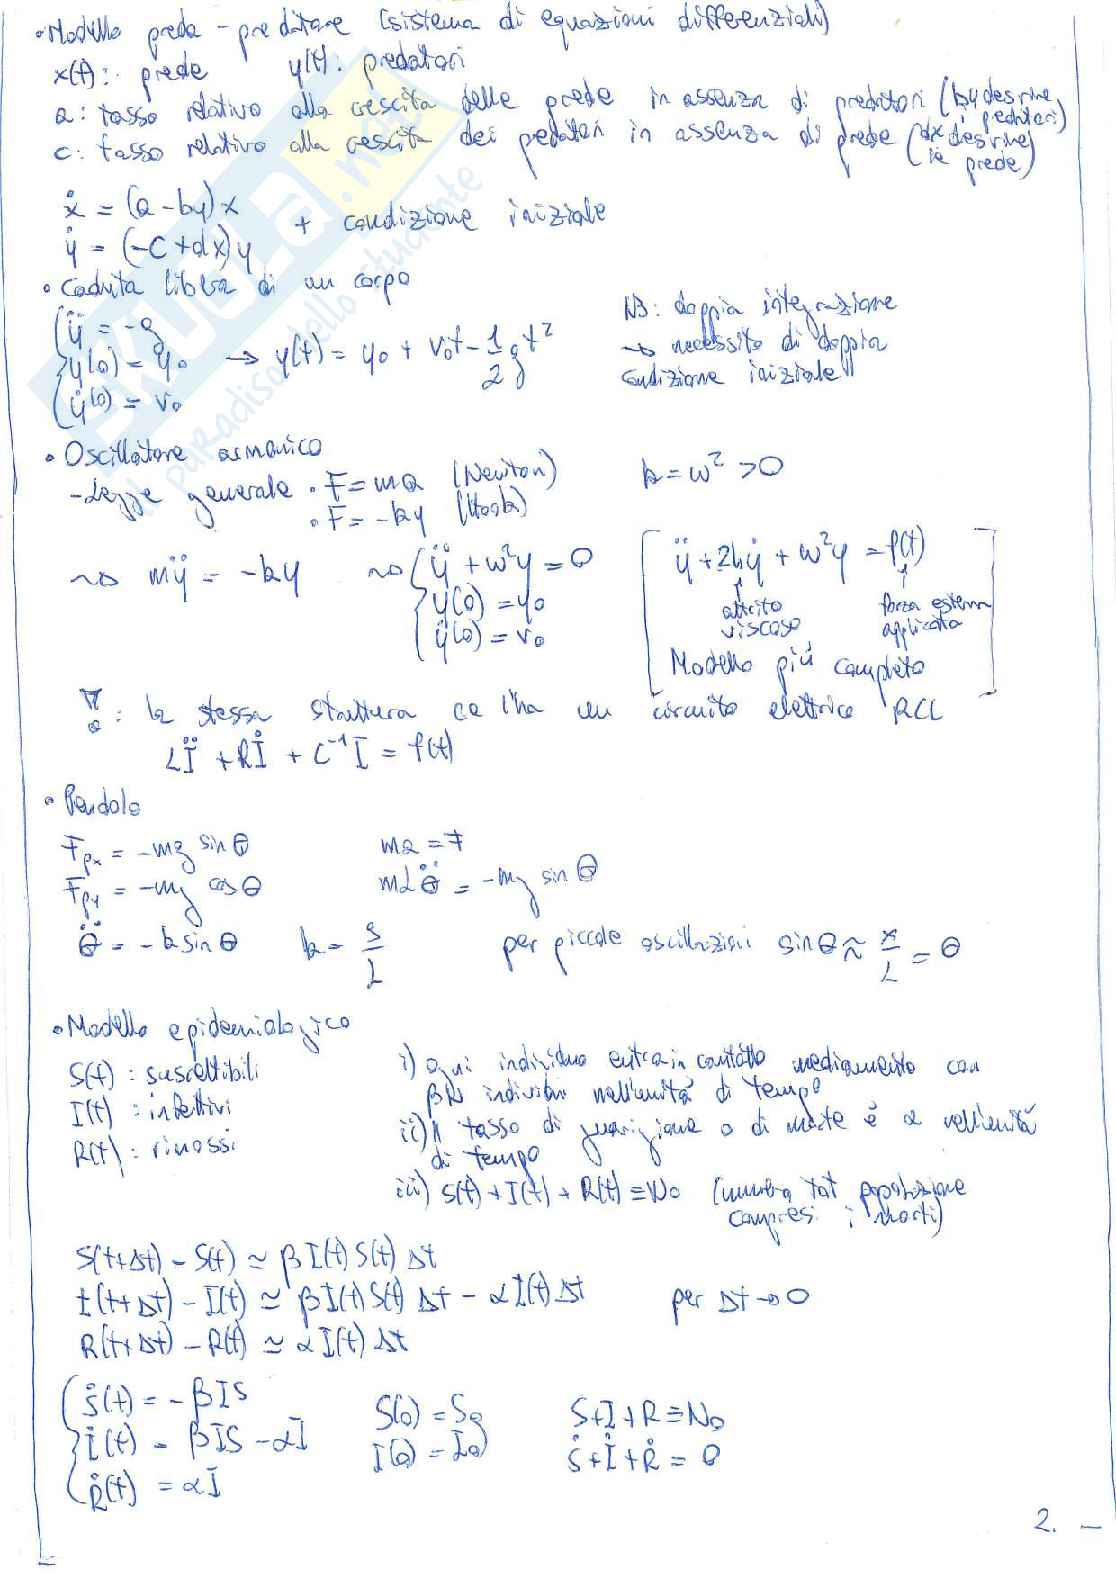 • Modello preda - predatore (sistema di equazioni differenziali)
x(t): prede y(t): predatori
a: tasso relativo alla crescita delle prede in assenza di predatori (by descrive i predatori)
c: tasso relativo alla crescita dei predatori in assenza di prede (dx descrive le prede)
ẋ = (a-by)x
ẏ = (-c+dx)y + condizione iniziale
• Caduta libera di un corpo
ÿ = -g
y(0) = y₀ → y(t) = y₀ + v₀t - 1/2 gt²
ẏ(0) = v₀
NB: doppia integrazione
→ necessito di doppia
condizione iniziale!!
• Oscillatore armonico
- Legge generale • F = ma (Newton) k = w² >0
• F = -ky (Hook)
~> mÿ = -ky ~> ÿ + w²y = 0
y(0) = y₀
ÿ(0) = v₀
[ÿ + 2hẏ + w²y = f(t)
attrito viscoso
forza esterna applicata
Modello più completo]
: la stessa struttura ce l'ha un circuito elettrico RCL
LÏ + Rİ + C⁻¹I = f(t)
• Pendolo
Fpx = -mg sinθ ma = F
Fpy = -mg cosθ mLθ̈ = -mg sinθ
θ̈ = -k sinθ k = g/L per piccole oscillazioni sinθ ≈ x/L = θ
• Modello epidemiologico
S(t): suscettibili
I(t): infettivi
R(t): rimossi
i) ogni individuo entra in contatto mediamente con
βN individui nell'unità di tempo
ii) il tasso di guarigione o di morte è α nell'unità
di tempo
iii) S(t) + I(t) + R(t) ≡ N₀ (numero tot popolazione
compresi i morti)
S(t+Δt) - S(t) ≃ βI(t)S(t)Δt
I(t+Δt) - I(t) ≃ βI(t)S(t)Δt - αI(t)Δt per Δt → 0
R(t+Δt) - R(t) ≃ αI(t)Δt
Ṡ(t) = -βIS S(0) = S₀ S+I+R ≡ N₀
İ(t) = βIS - αI I(0) = I₀ Ṡ+İ+Ṙ = 0
Ṙ(t) = αI
2. -
SKUOLA.net
il paradiso dello studente